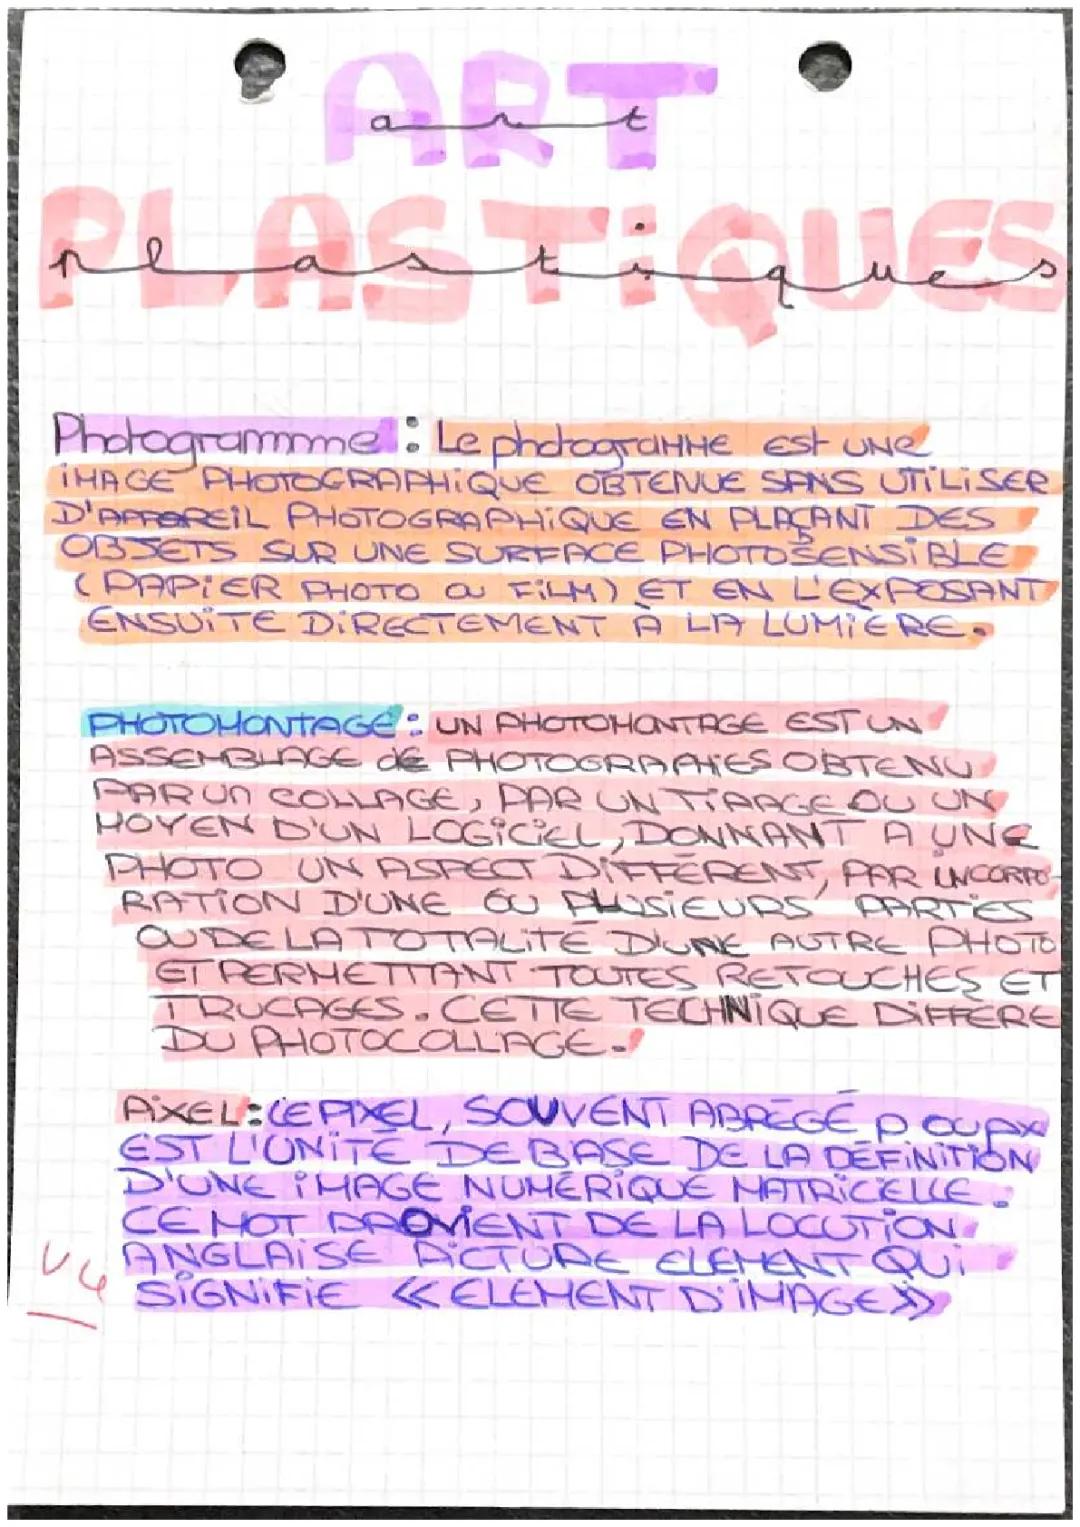 ART
art
PLASTIQUES
plastiques
Photogrammme : Le photogramme est une
image photographique obtenue sans utiliser
d'appareil photographique en plaçant des
objets sur une surface photosensible
(papier photo ou film) et en l'exposant
ensuite directement à la lumière.
PHOTOMONTAGE : UN PHOTOMONTAGE EST UN
ASSEMBLAGE de PHOTOGRAPHIES OBTENU
PAR UN COLLAGE, PAR UN TIRAGE OU UN
MOYEN D'UN LOGICIEL, DONNANT A UNE
PHOTO UN ASPECT DIFFÉRENT, PAR INCORPO-
RATION D'UNE OU PLUSIEURS PARTIES
OU DE LA TOTALITÉ D'UNE AUTRE PHOTO
ET PERMETTANT TOUTES RETOUCHES ET
TRUCAGES. CETTE TECHNIQUE DIFFÈRE
DU PHOTOCOLLAGE.
PIXEL : LE PIXEL, SOUVENT ABRÉGÉ p ou px
EST L'UNITÉ DE BASE DE LA DÉFINITION
D'UNE IMAGE NUMÉRIQUE MATRICIELLE.
CE MOT PROVIENT DE LA LOCUTION
ANGLAISE PICTURE ELEMENT QUI
SIGNIFIE « ELEMENT D'IMAGE »